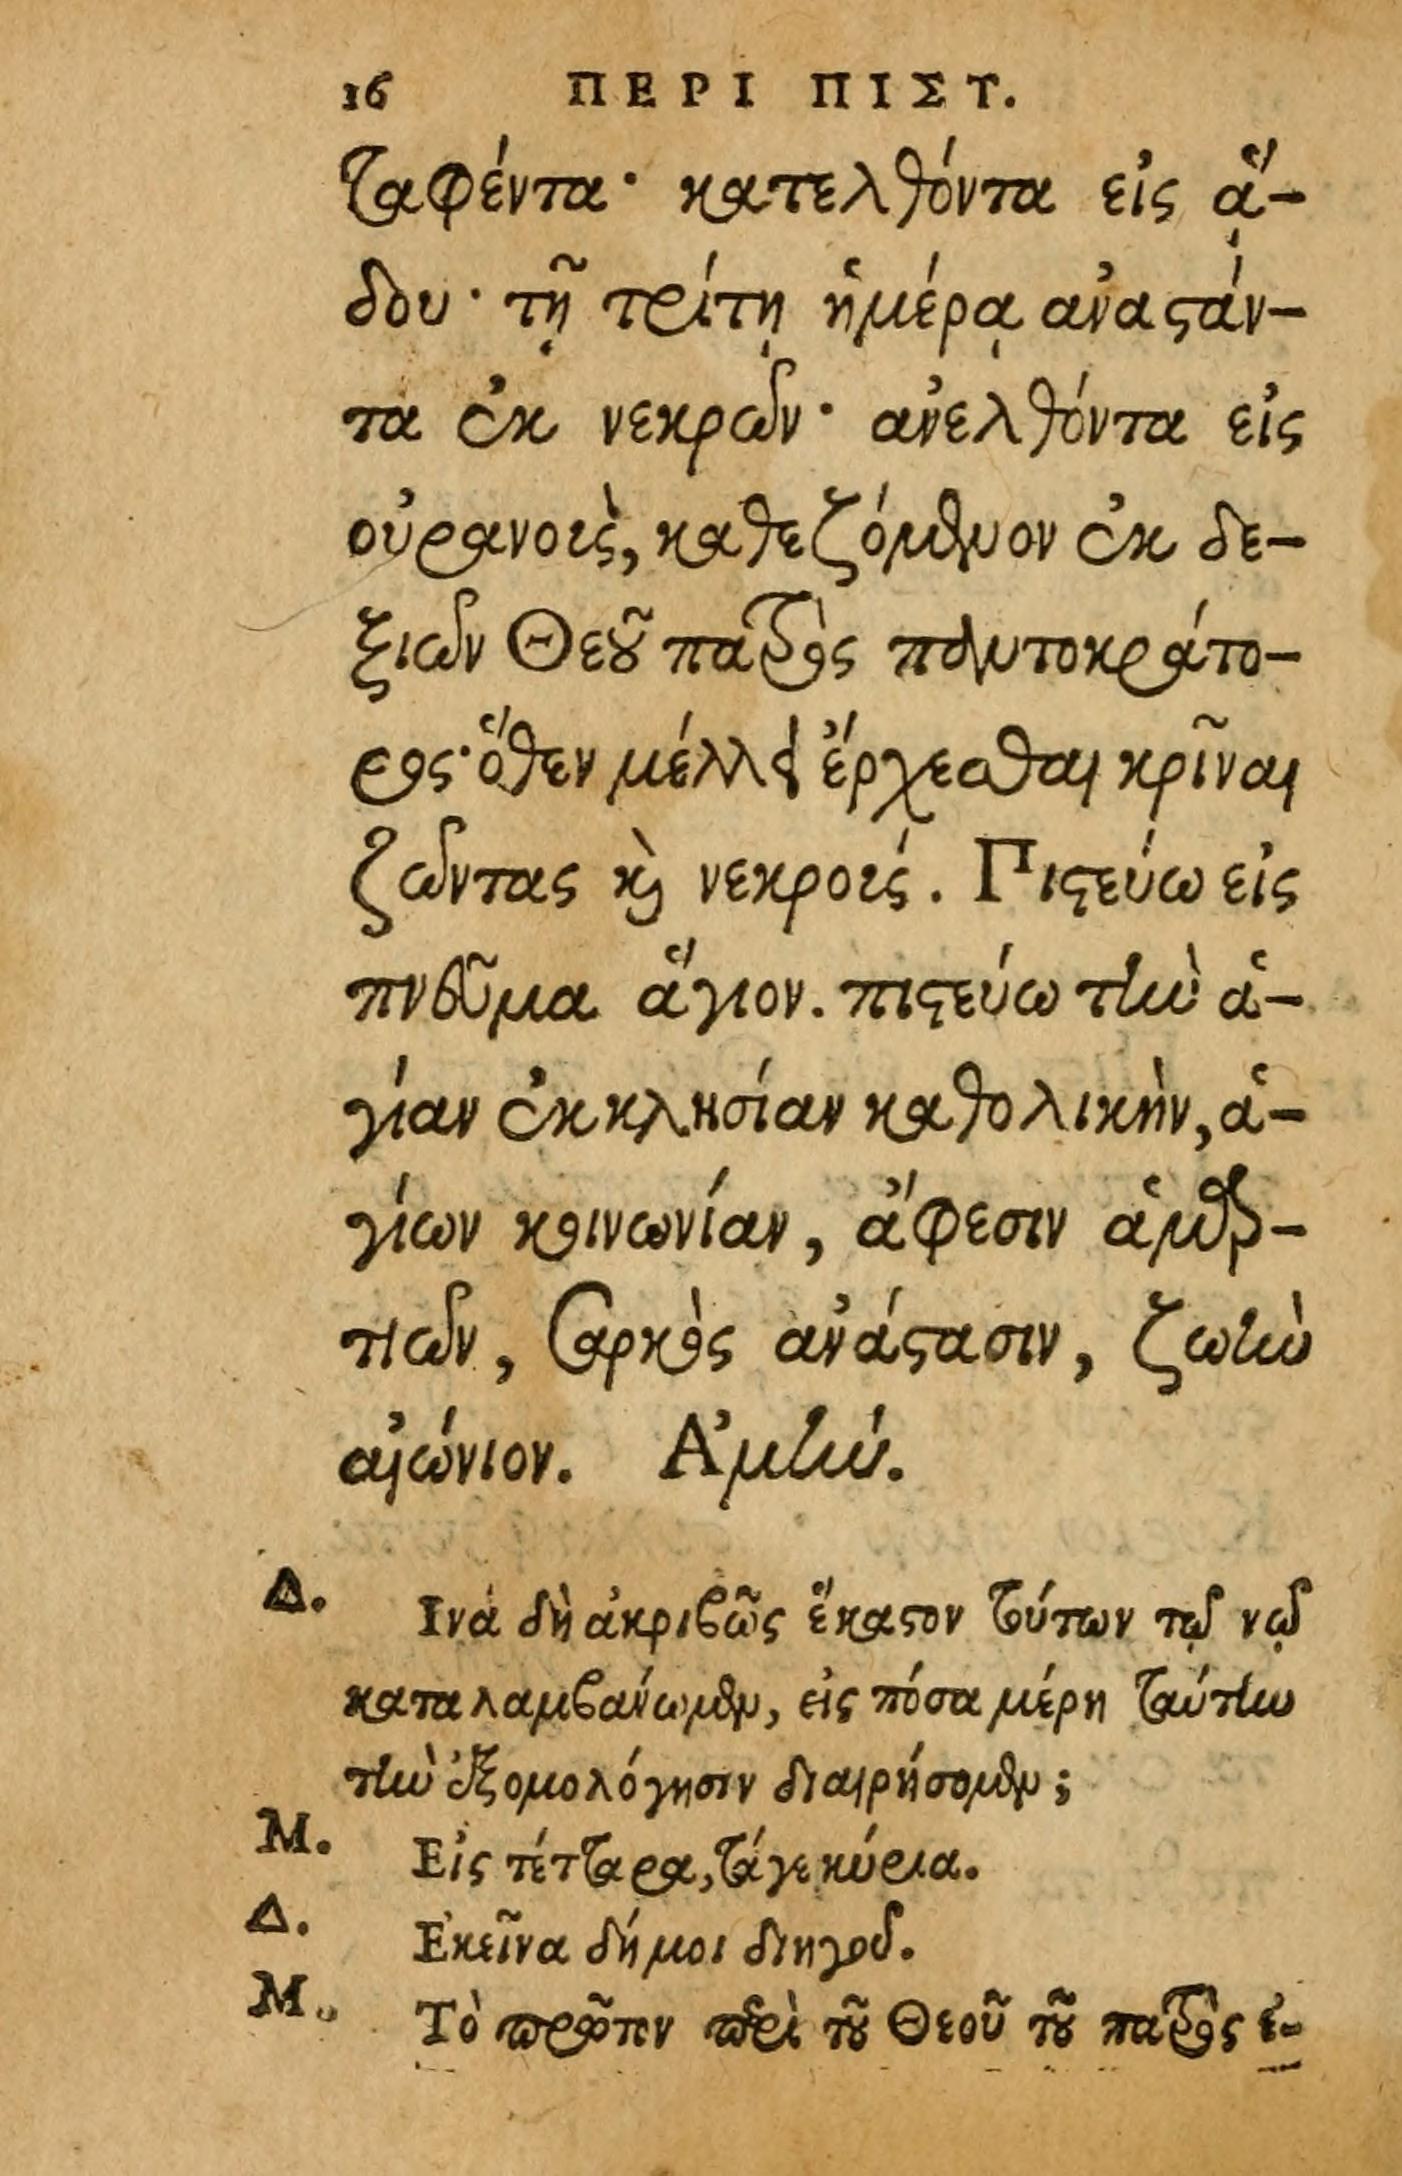 16 ΠΕΡΙ ΠΙΣΤ.
ταφέντα· κατελθόντα εἰς ᾅ-
δου· τῇ τρίτῃ ἡμέρᾳ ἀναστάν-
τα ἐκ νεκρῶν· ἀνελθόντα εἰς
οὐρανοὺς, καθεζόμενον ἐκ δε-
ξιῶν Θεοῦ πατρὸς παντοκράτο-
ρος· ὅθεν μέλλει ἔρχεσθαι κρῖναι
ζῶντας καὶ νεκρούς. Πιστεύω εἰς
πνεῦμα ἅγιον. πιστεύω τὴν ἁ-
γίαν ἐκκλησίαν καθολικὴν, ἁ-
γίων κοινωνίαν, ἄφεσιν ἁμαρ-
τιῶν, σαρκὸς ἀνάστασιν, ζωὴν
αἰώνιον. Ἀμήν.
Δ. Ινα δὴ ἀκριβῶς ἕκαστον τούτων τῷ νῷ
καταλαμβάνωμεν, εἰς πόσα μέρη ταύτην
τὴν ἐξομολόγησιν διαιρήσομεν;
Μ. Εἰς τέτταρα, τά γε κύρια.
Δ. Ἐκεῖνα δή μοι διηγοῦ.
Μ. Τὸ πρῶτον περὶ τοῦ Θεοῦ τοῦ πατρὸς ἐ-